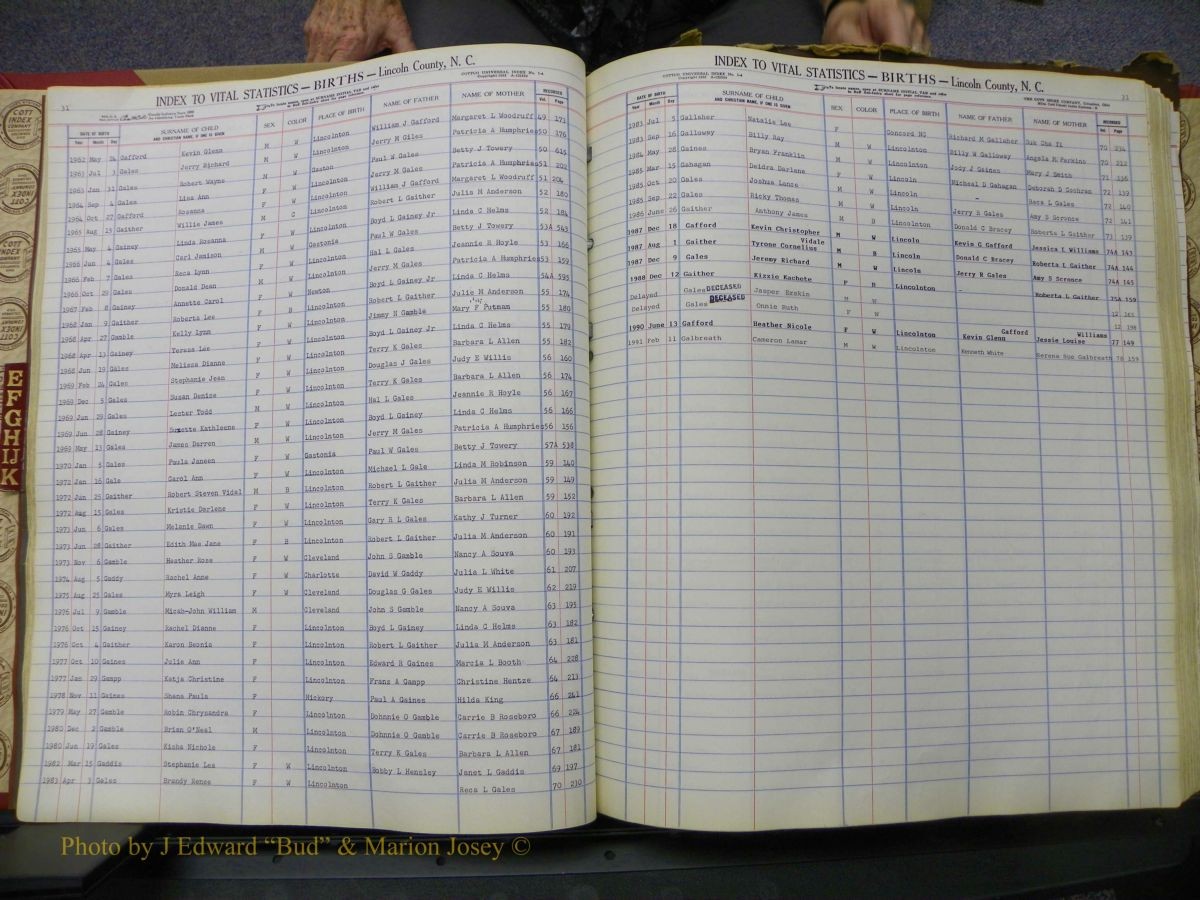 INDEX TO VITAL STATISTICS — BIRTHS — Lincoln County, N. C.
COTTCO UNIVERSAL INDEX No. 1-A
31
DATE OF BIRTH SURNAME OF CHILD SEX COLOR PLACE OF BIRTH NAME OF FATHER NAME OF MOTHER RECORDED
Year Month Day AND CHRISTIAN NAME, IF ONE IS GIVEN Vol. Page
1962 May 24 Gafford Kevin Glenn M W Lincolnton William J Gafford Margaret L Woodruff 49 173
1963 Jul 3 Gales Jerry Richard M W Lincolnton Jerry M Giles Patricia A Humphries 50 176
1963 Jan 31 Gales Robert Wayne M W Gaston Paul W Gales Betty J Towery 50 615
1964 Sep 4 Gales Lisa Ann F W Lincolnton Jerry M Gales Patricia A Humphries 51 202
1964 Oct 27 Gafford Rosanna F W Lincolnton William J Gafford Margaret L Woodruff 51 204
1965 Aug 15 Gaither Willie James M C Lincolnton Robert L Gaither Julia M Anderson 52 180
1965 May 4 Gainey Linda Rosanna F W Lincolnton Boyd L Gainey Jr Linda C Helms 52 184
1966 Jun 4 Gales Carl Jamison M W Gastonia Paul W Gales Betty J Towery 53A 543
1966 Feb 7 Gales Reca Lynn F W Lincolnton Hal L Gales Jeannie R Hoyle 53 166
1966 Oct 29 Gales Donald Dean M W Lincolnton Jerry M Gales Patricia A Humphries 53 159
1967 Feb 8 Gainey Annette Carol F W Newton Boyd L Gainey Jr Linda C Helms 54A 595
1968 Jan 9 Gaither Roberta Lee F B Lincolnton Robert L Gaither Julie M Anderson 55 174
1968 Apr 27 Gamble Kelly Lynn F W Lincolnton Jimmy N Gamble Mary F Putman 55 180
1968 Apr 13 Gainey Teresa Lee F W Lincolnton Boyd L Gainey Jr Linda C Helms 55 179
1968 Jun 19 Gales Melissa Dianne F W Lincolnton Terry K Gales Barbara L Allen 55 182
1969 Feb 24 Gales Stephanie Jean F W Lincolnton Douglas J Gales Judy E Willis 56 160
1969 Dec 5 Gales Susan Denise F W Lincolnton Terry K Gales Barbara L Allen 56 174
1969 Jun 29 Gales Lester Todd M W Lincolnton Hal L Gales Jeannie R Hoyle 56 167
1969 Jun 28 Gainey Suzette Kathleene F W Lincolnton Boyd L Gainey Linda C Helms 56 166
1969 May 13 Gales James Darren M W Lincolnton Jerry M Gales Patricia A Humphries 56 156
1970 Jan 5 Gales Paula Janeen F W Gastonia Paul W Gales Betty J Towery 57A 538
1972 Jan 16 Gale Carol Ann F W Lincolnton Michael L Gale Linda M Robinson 59 140
1972 Jan 25 Gaither Robert Steven Vidal M B Lincolnton Robert L Gaither Julia M Anderson 59 149
1972 Aug 15 Gales Kristie Darlene F W Lincolnton Terry K Gales Barbara L Allen 59 152
1973 Jun 6 Gales Melonie Dawn F W Lincolnton Gary R L Gales Kathy J Turner 60 192
1973 Jun 28 Gaither Edith Mae Jane F B Lincolnton Robert L Gaither Julia M Anderson 60 191
1973 Nov 6 Gamble Heather Rose F W Cleveland John S Gamble Nancy A Souva 60 193
1974 Aug 5 Gaddy Rachel Anne F W Charlotte David W Gaddy Julia L White 61 207
1975 Aug 25 Gales Myra Leigh F W Cleveland Douglas G Gales Judy E Willis 62 219
1976 Jul 9 Gamble Micah-John William M Cleveland John S Gamble Nancy A Souva 63 195
1976 Oct 15 Gainey Rachel Dianne F Lincolnton Boyd L Gainey Linda C Helms 63 182
1976 Oct 4 Gaither Karon Beonia F Lincolnton Robert L Gaither Julia M Anderson 63 181
1977 Oct 10 Gaines Julie Ann F Lincolnton Edward R Gaines Marcia L Booth 64 228
1977 Jan 29 Gampp Katja Christine F Lincolnton Frans A Gampp Christine Hentze 64 213
1978 Nov 11 Gaines Shana Paula F Hickory Paul A Gaines Hilda King 66 241
1979 May 27 Gamble Robin Chrysandra F Lincolnton Dohnnie O Gamble Carrie B Roseboro 66 224
1980 Dec 2 Gamble Brian O'Neal M Lincolnton Dohnnie O Gamble Carrie B Roseboro 67 189
1980 Jun 19 Gales Kisha Nichole F Lincolnton Terry K Gales Barbara L Allen 67 181
1982 Mar 15 Gaddis Stephanie Lea F W Lincolnton Bobby L Hensley Janet L Gaddis 69 197
1983 Apr 3 Gales Brandy Renee F W Lincolnton Reca L Gales 70 230
INDEX TO VITAL STATISTICS — BIRTHS — Lincoln County, N. C.
COTTCO UNIVERSAL INDEX No. 1-A
31
DATE OF BIRTH SURNAME OF CHILD SEX COLOR PLACE OF BIRTH NAME OF FATHER NAME OF MOTHER RECORDED
Year Month Day AND CHRISTIAN NAME, IF ONE IS GIVEN Vol. Page
1983 Jul 5 Gallaher Natalie Lee F Concord NC Richard M Gallaher Suk Cha Ti 70 234
1983 Sep 16 Galloway Billy Ray M W Lincolnton Billy W Galloway Angela M Perkins 70 212
1984 May 28 Gaines Bryan Franklin M W Lincolnton Jody J Gaines Mary J Smith 71 336
1985 Mar 15 Gahagan Deidra Darlene F W Lincolnton Micheal S Gahagan Deborah D Cochran 72 139
1985 Oct 20 Gales Joshua Lance M W Lincoln - Reca L Gales 72 140
1985 Sep 22 Gales Ricky Thomas M W Lincoln Jerry R Gales Amy S Scronce 72 141
1986 June 26 Gaither Anthony James M B Lincolnton Donald C Bracey Roberta L Gaither 73 139
1987 Dec 18 Gafford Kevin Christopher M W Lincoln Kevin G Gafford Jessica L Williams 74A 143
1987 Aug 1 Gaither Tyrone Cornelius Vidale M B Lincoln Donald C Bracey Roberta L Gaither 74A 144
1987 Dec 9 Gales Jeremy Richard M W Lincoln Jerry R Gales Amy S Scronce 74A 145
1988 Dec 12 Gaither Kizzie Kachete F B Lincolnton - Roberta L Gaither 75A 159
Delayed Gales DECEASED Jasper Erskin M W 12 163
Delayed Gales DECEASED Onnie Ruth F W 12 198
1990 June 13 Gafford Heather Nicole F W Lincolnton Kevin Glenn Gafford Jessie Louise Williams 77 149
1991 Feb 11 Galbreath Cameron Lamar M W Lincolnton Kenneth White Serena Sue Galbreath 78 159
COTT
INDEX
COMPANY
E
F
G
H
IJ
K
Photo by J Edward “Bud” & Marion Josey ©